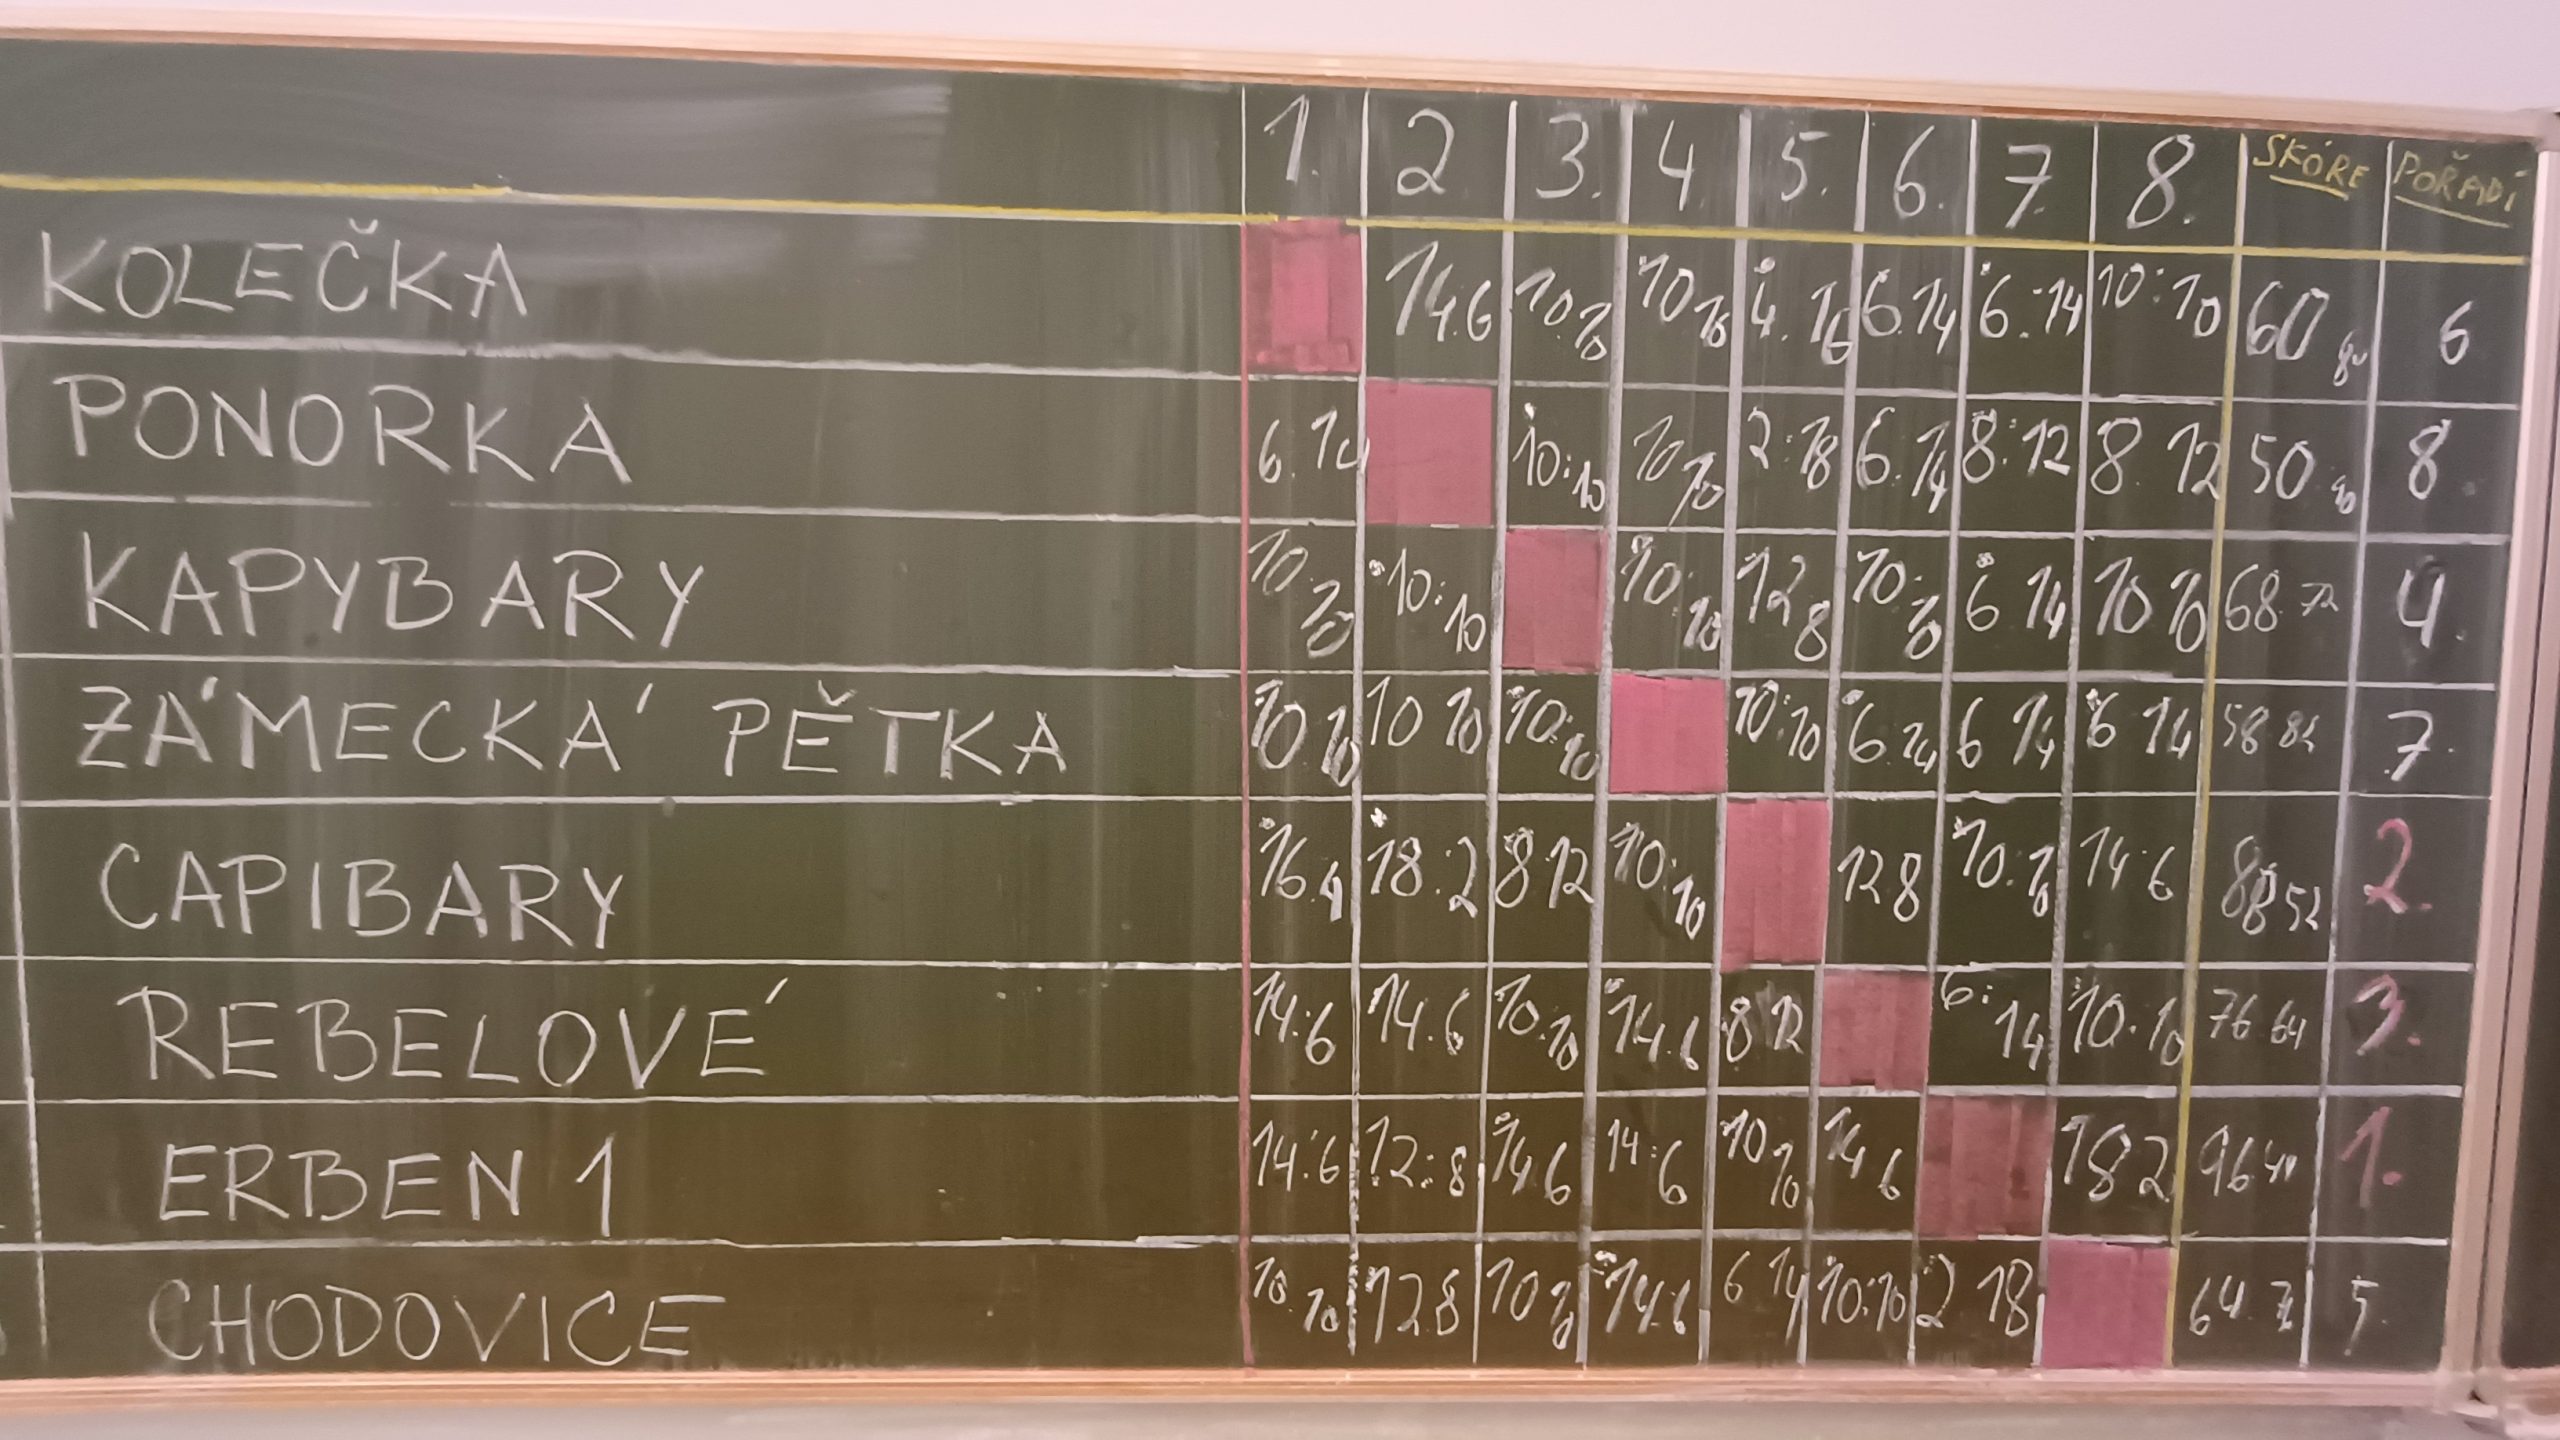 1. 2 3. 4. 5. 6. 7. 8. SKÓRE POŘADÍ
KOLEČKA 14:6 10:10 10:10 4:16 6:14 6:14 10:10 60 80 6
PONORKA 6:14 10:10 10 10 2:18 6:14 8:12 8 12 50 90 8
KAPYBARY 10:10 10:10 10:10 12 8 10:10 6 14 10 10 68:72 4.
ZÁMECKÁ PĚTKA 10 10 10 10 10:10 10:10 6:14 6 14 6 14 58 82 7.
CAPIBARY 16:4 18:2 8:12 10:10 12 8 10:10 14:6 88 52 2.
REBELOVÉ 14:6 14:6 10:10 14:6 8 12 6:14 10:10 76:64 3.
ERBEN 1 14:6 12:8 14 6 14:6 10 10 14 6 18 2 96 1.
CHODOVICE 10:10 12 8 10 10 14:6 6 14 10:10 2 18 64 5.